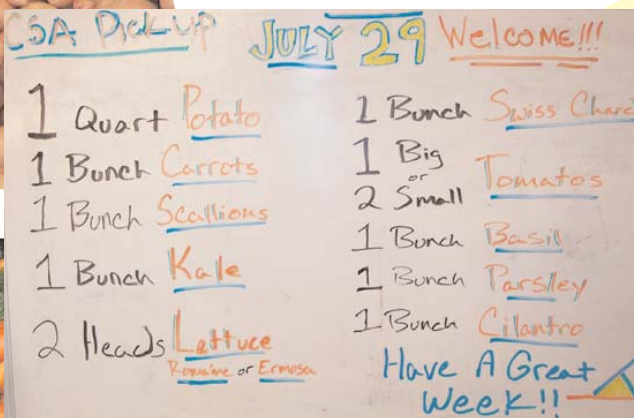 CSA Pick-up JULY 29 Welcome!!!
1 Quart Potato
1 Bunch Carrots
1 Bunch Scallions
1 Bunch Kale
2 Heads Lettuce
Romaine or Ermosa
1 Bunch Swiss Chard
1 Big
or
2 Small Tomatos
1 Bunch Basil
1 Bunch Parsley
1 Bunch Cilantro
Have A Great
Week!!